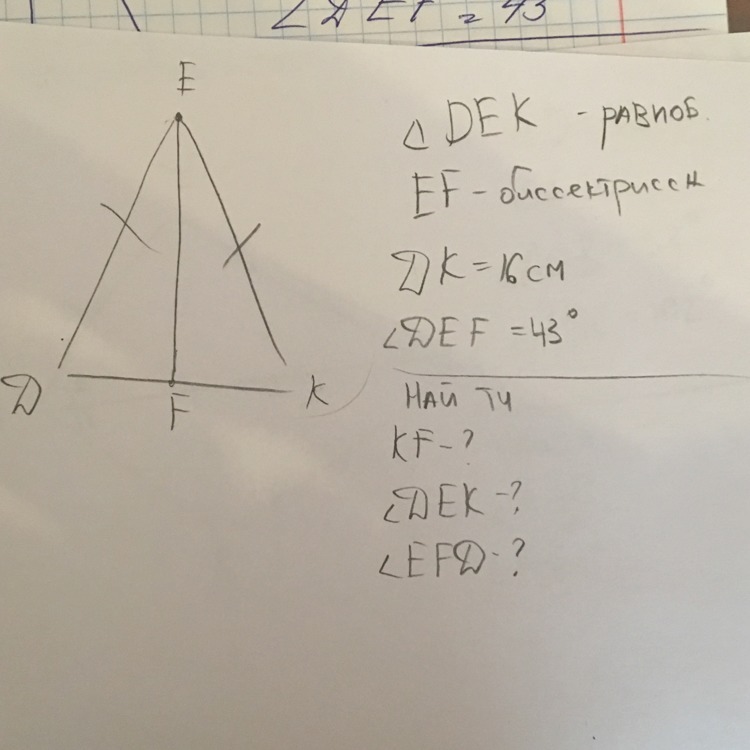 ∠DEF = 43
E
△ DEK - равноб.
EF - биссектрисса
DK = 16 см
∠DEF = 43°
D
F
K
Найти
KF - ?
∠DEK - ?
∠EFD - ?